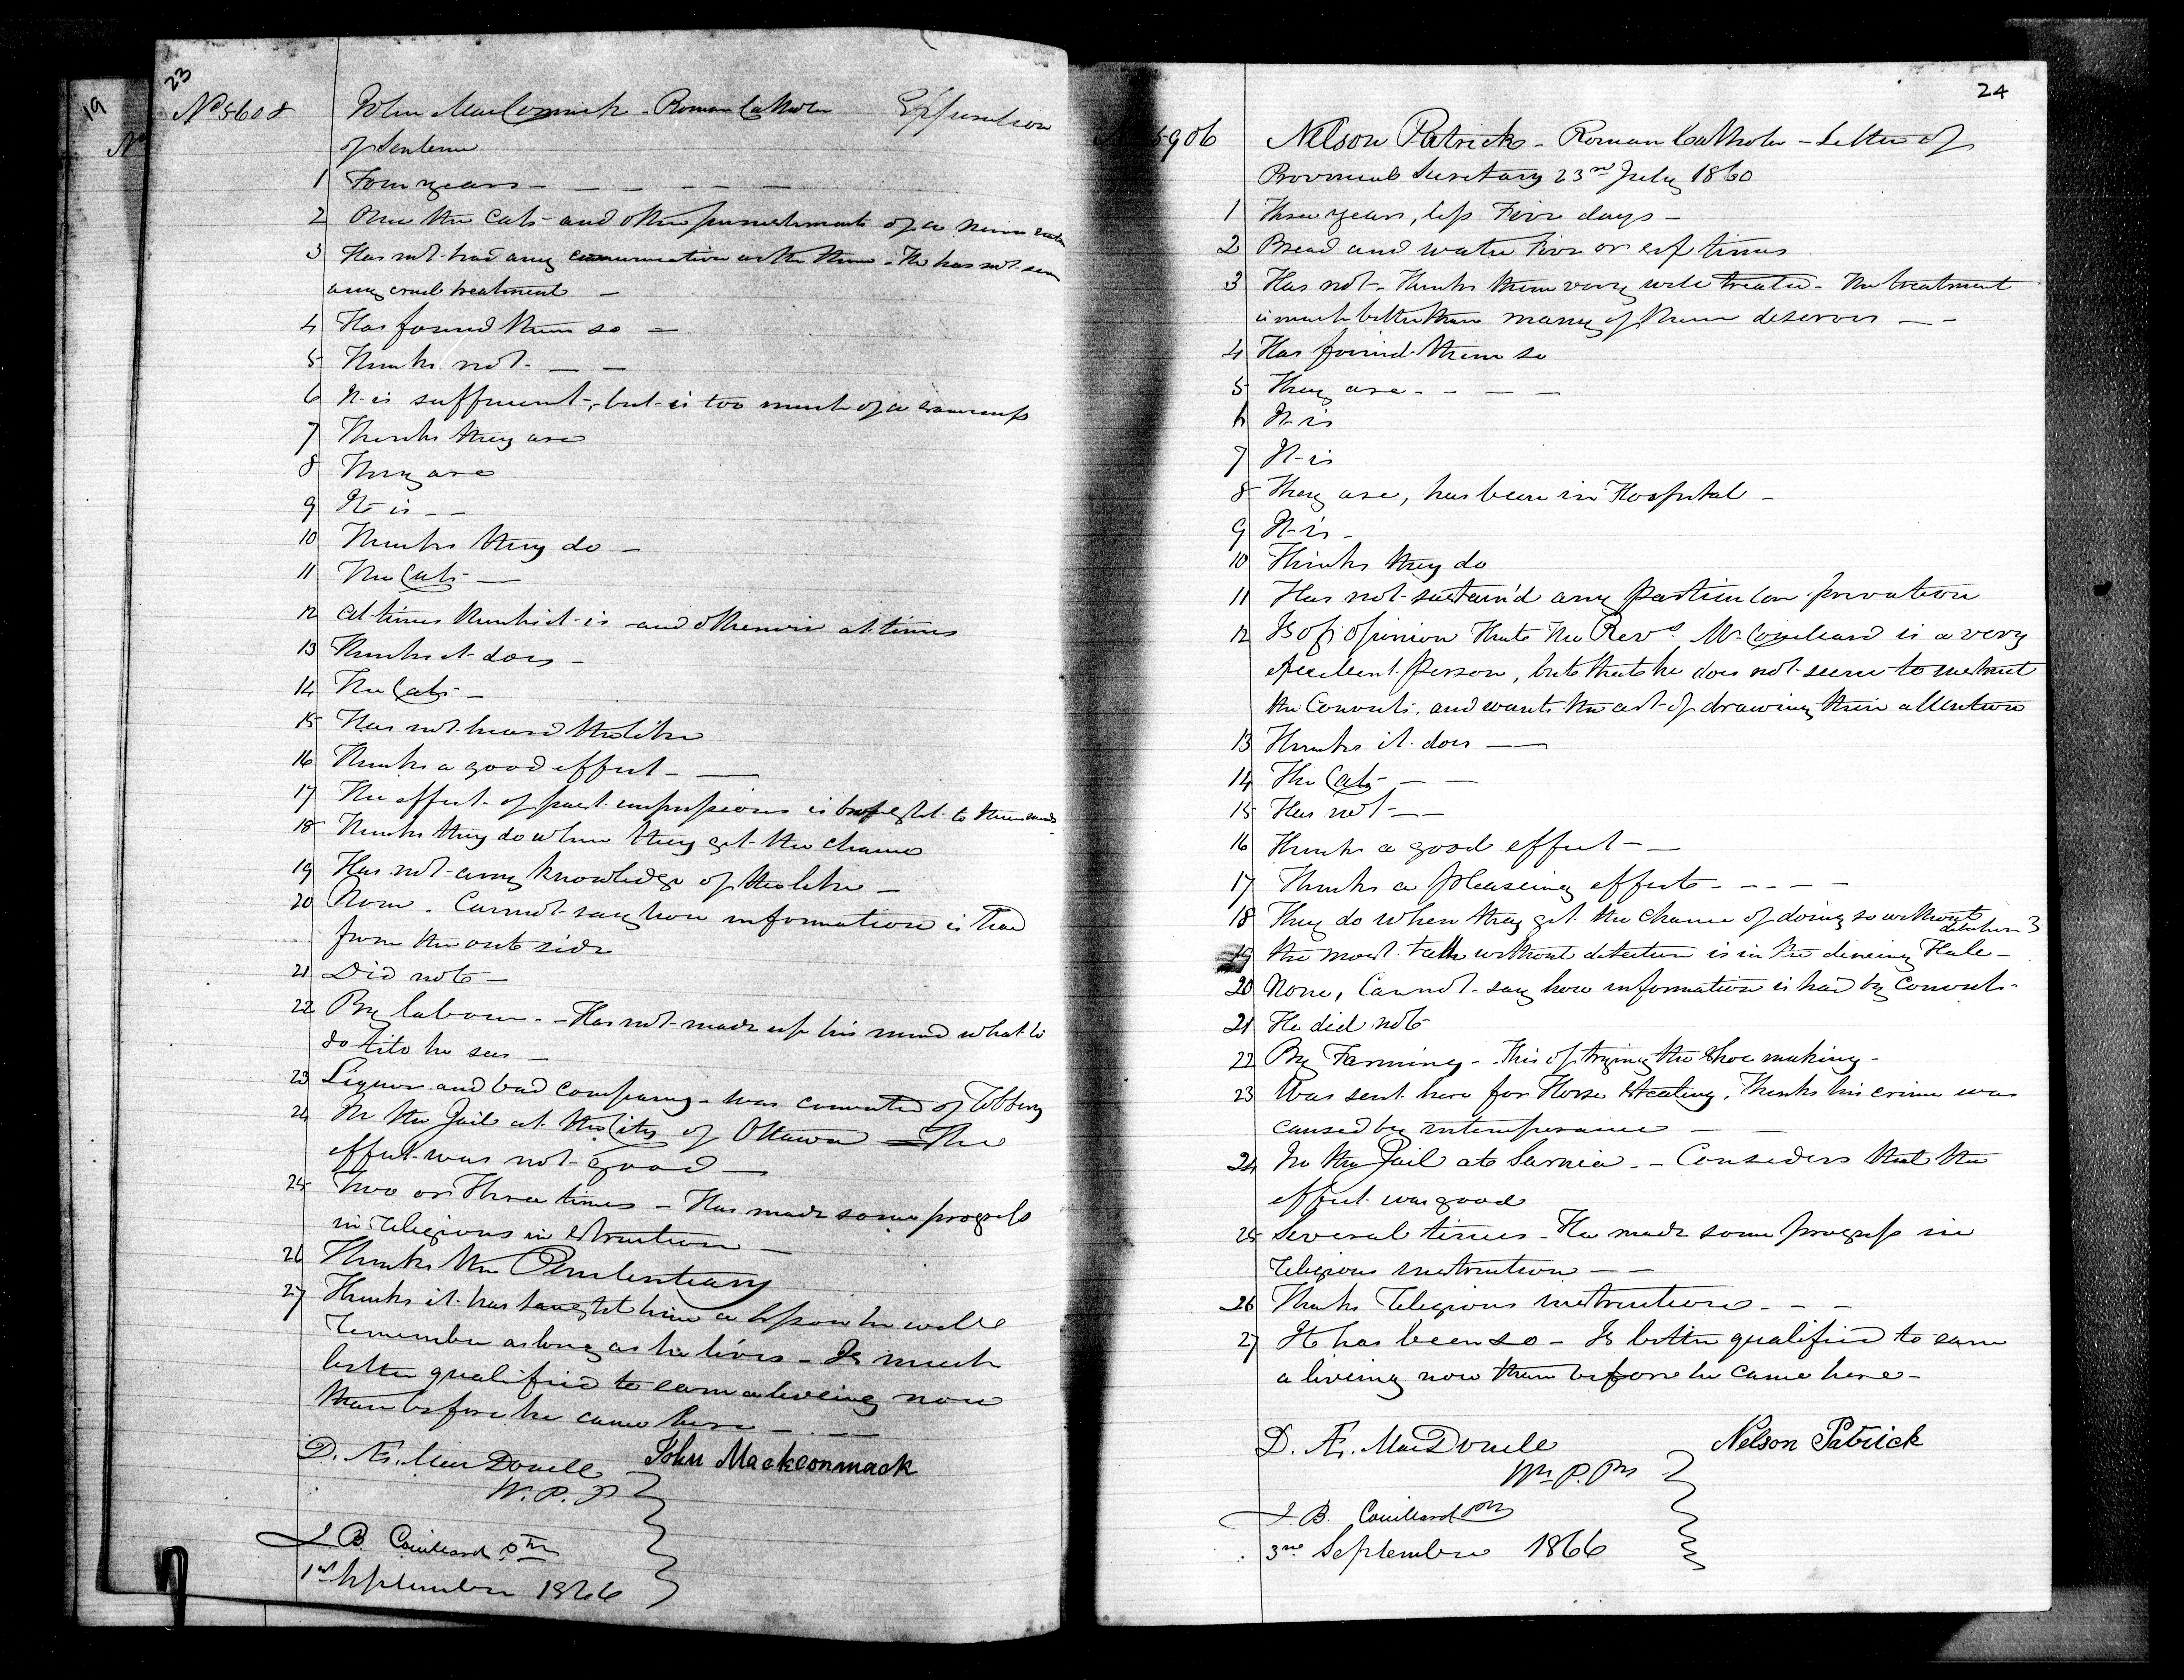 19
23
No 5608 John MacCormick - Roman Catholic Expiration
of Sentence
1 Four years -
2 Once the Cats and other punishments of a minor
3 Has not had any communication with them. He has not seen
any cruel treatment -
4 Has found them so -
5 Thinks not -
6 It is sufficient, but is too much of a sameness
7 Thinks they are
8 They are
9 It is - -
10 Thinks they do -
11 The Cats -
12 At times thinks it is and otherwise at times
13 Thinks it does -
14 The Cats -
15 Has not heard the like
16 Thinks a good effect -
17 The effect of past impressions is brought to their minds
18 Thinks they do when they get the chance
19 Has not any knowledge of the like -
20 None. Cannot say how information is had
from the out side
21 Did not -
22 By labour - Has not made up his mind what to
do till he sees -
23 Liquor and bad company - was convicted of Robbery
24 In the Jail at the City of Ottawa - The
effect was not good -
25 Two or Three times - Has made some progress
in religious instruction -
26 Thinks the Penitentiary
27 Thinks it has taught him a lesson he will
remember as long as he lives - Is much
better qualified to earn a liveing now
than before he came here -
D. Æ. MacDonell John Mackconmack
W. P. P
J B. Couillard ptr
1st September 1866
24
No 5906 Nelson Patrick - Roman Catholic - Letter of
Provincial Secretary 23rd July 1860
1 Three years, less Five days -
2 Bread and water Five or six times
3 Has not - Thinks them very well treated - The treatment
is much better than many of them deserves - -
4 Has found them so
5 They are - - - -
6 It is
7 It is
8 They are, has been in Hospital -
9 It is -
10 Thinks they do
11 Has not sustain'd any particular privation
12 Is of opinion that the Revd. Mr Couillard is a very
excellent person, but that he does not seem to instruct
the Convicts, and wants the art of drawing their attention
13 Thinks it does -
14 The Cats - -
15 Has not - -
16 Thinks a good effect - -
17 Thinks a pleaseing effect - - - -
18 They do when they get the chance of doing so without
detection
19 the most talk without detection is in the dineing Hall -
20 None, Cannot say how information is had by Convicts -
21 He did not
22 By Farming - This of trying the shoe making -
23 Was sent here for Horse Stealing, Thinks his crime was
caused by intemperance - -
24 In the Jail at Sarnia - Considers that the
effect was good
25 Several times - He made some progress in
religious instruction - -
26 Thinks religious instructions - - -
27 It has been so - Is better qualified to earn
a liveing now than before he came here -
D. Æ. MacDonell Nelson Patrick
J. B. Couillard ptr
3rd September 1866